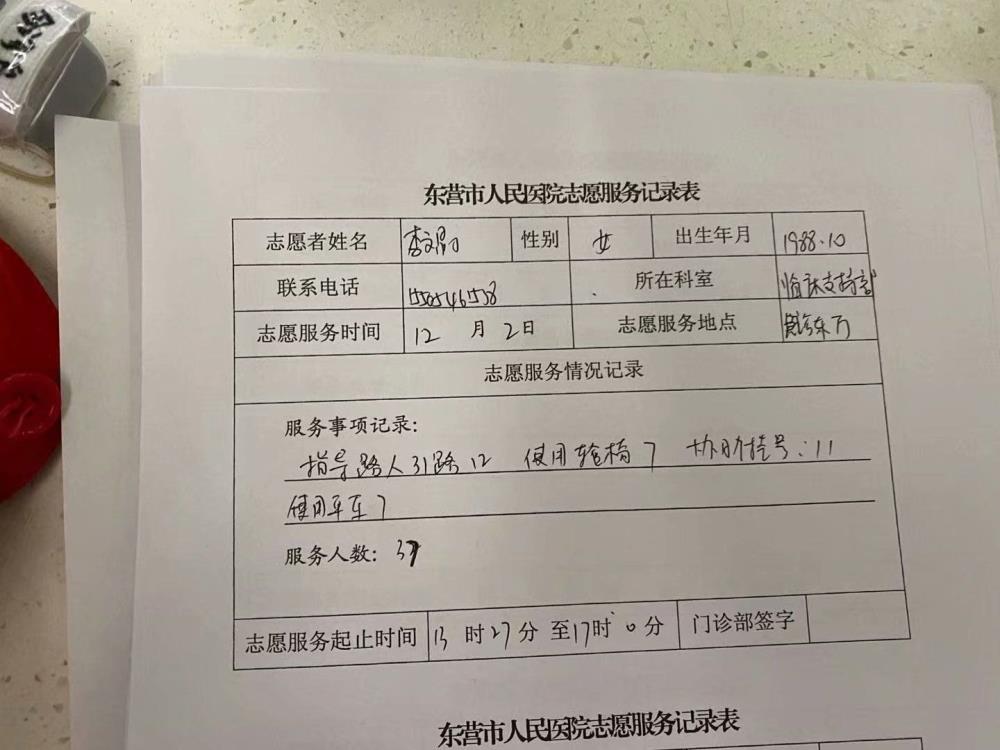 东营市人民医院志愿服务记录表
志愿者姓名 李文 性别 女 出生年月 1988.10
联系电话 所在科室 临床支持部
志愿服务时间 12 月 2日 志愿服务地点
志愿服务情况记录
服务事项记录:
指导路人引路 12 使用轮椅 7 协助挂号:11
使用平车 7
服务人数: 37
志愿服务起止时间 13 时27分 至17时0分 门诊部签字
东营市人民医院志愿服务记录表